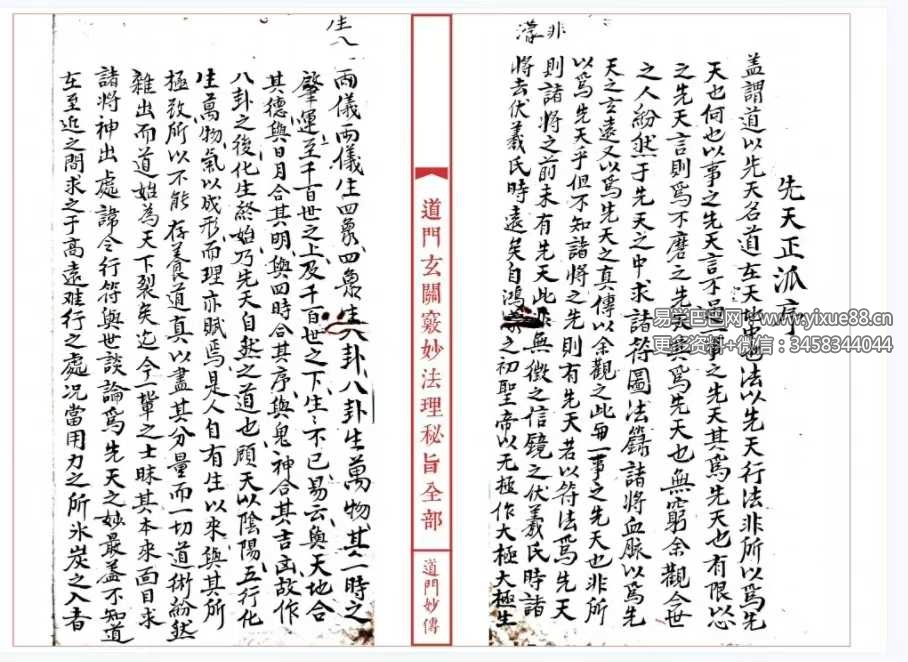 先天正派序
盖謂道以先天名道在天地也法以先天行法非所以為先
天也何也以事之先天言不過一事之先天其為先天也有限以心
之先天言則為不磨之先天其為先天也無窮余觀今世
之人紛然于先天之中求諸符圖法籙諸將血脈以為先
天之玄遠又以為先天之真傳以余觀之此毎一事之先天也非所
以為先天乎但不知諸將之先則有先天若以符法為先天
則諸將之前未有先天此非無徵之信鏡之伏羲氏時諸
非濛
將去伏羲氏時遠矣自鴻之初聖帝以无極作大極大極生
道門玄關竅妙法理秘旨全部
道門妙傳
生八
兩儀兩儀生四象四象生八卦八卦生萬物其一時之
肇運至千百世之上及千百世之下生〻不已易云與天地合
其德與日月合其明與四時合其序與鬼神合其吉凶故作
八卦之後化生終始乃先天自然之道也頋天以陰陽五行化
生萬物氣以成形而理亦賦焉是人自有生以來與其所
極致所以不能存養道真以盡其分量而一切道術紛然
雜出而道始為天下裂矣迄今一輩之士昧其本來面目求
諸將神出處諱令行符與世談論為先天之妙最盖不知道
在至近之間求之于高遠难行之處况當用力之所氷炭之入者
易学巴巴网：www.yixue88.cn
更多资料+微信：3458344044